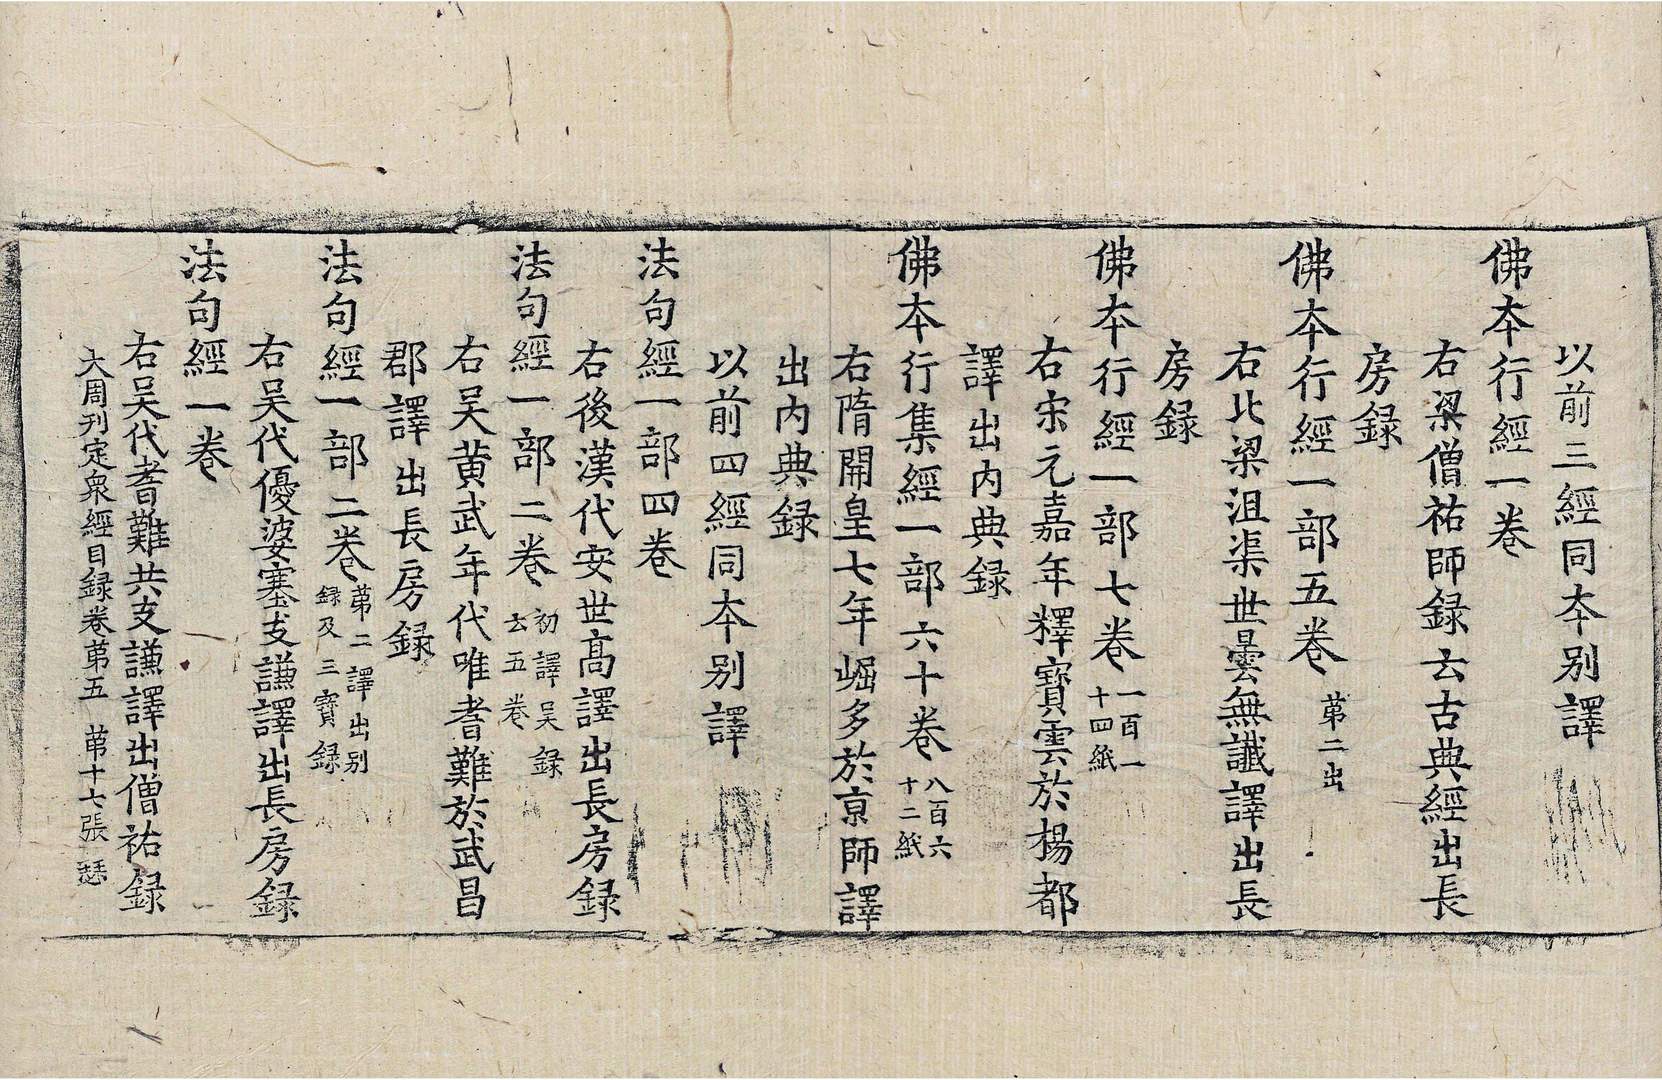 以前三經同本别譯
佛本行經一卷
右梁僧祐師録云古典經出長
房録
佛本行經一部五卷第二出
右北梁沮渠世曇無讖譯出長
房録
佛本行經一部七卷一百一十四紙
右宋元嘉年釋寶雲於楊都
譯出内典録
佛本行集經一部六十卷八百六十二紙
右隋開皇七年崛多於京師譯
出内典録
以前四經同本别譯
法句經一部四卷
右後漢代安世高譯出長房録
法句經一部二卷初譯吴録云五卷
右吴黄武年代唯耆難於武昌
郡譯出長房録
法句經一部二卷第二譯出别録及三寶録
右吴代優婆塞支謙譯出長房録
法句經一卷
右吴代耆難共支謙譯出僧祐録
大周刊定衆經目録卷第五 第十七張